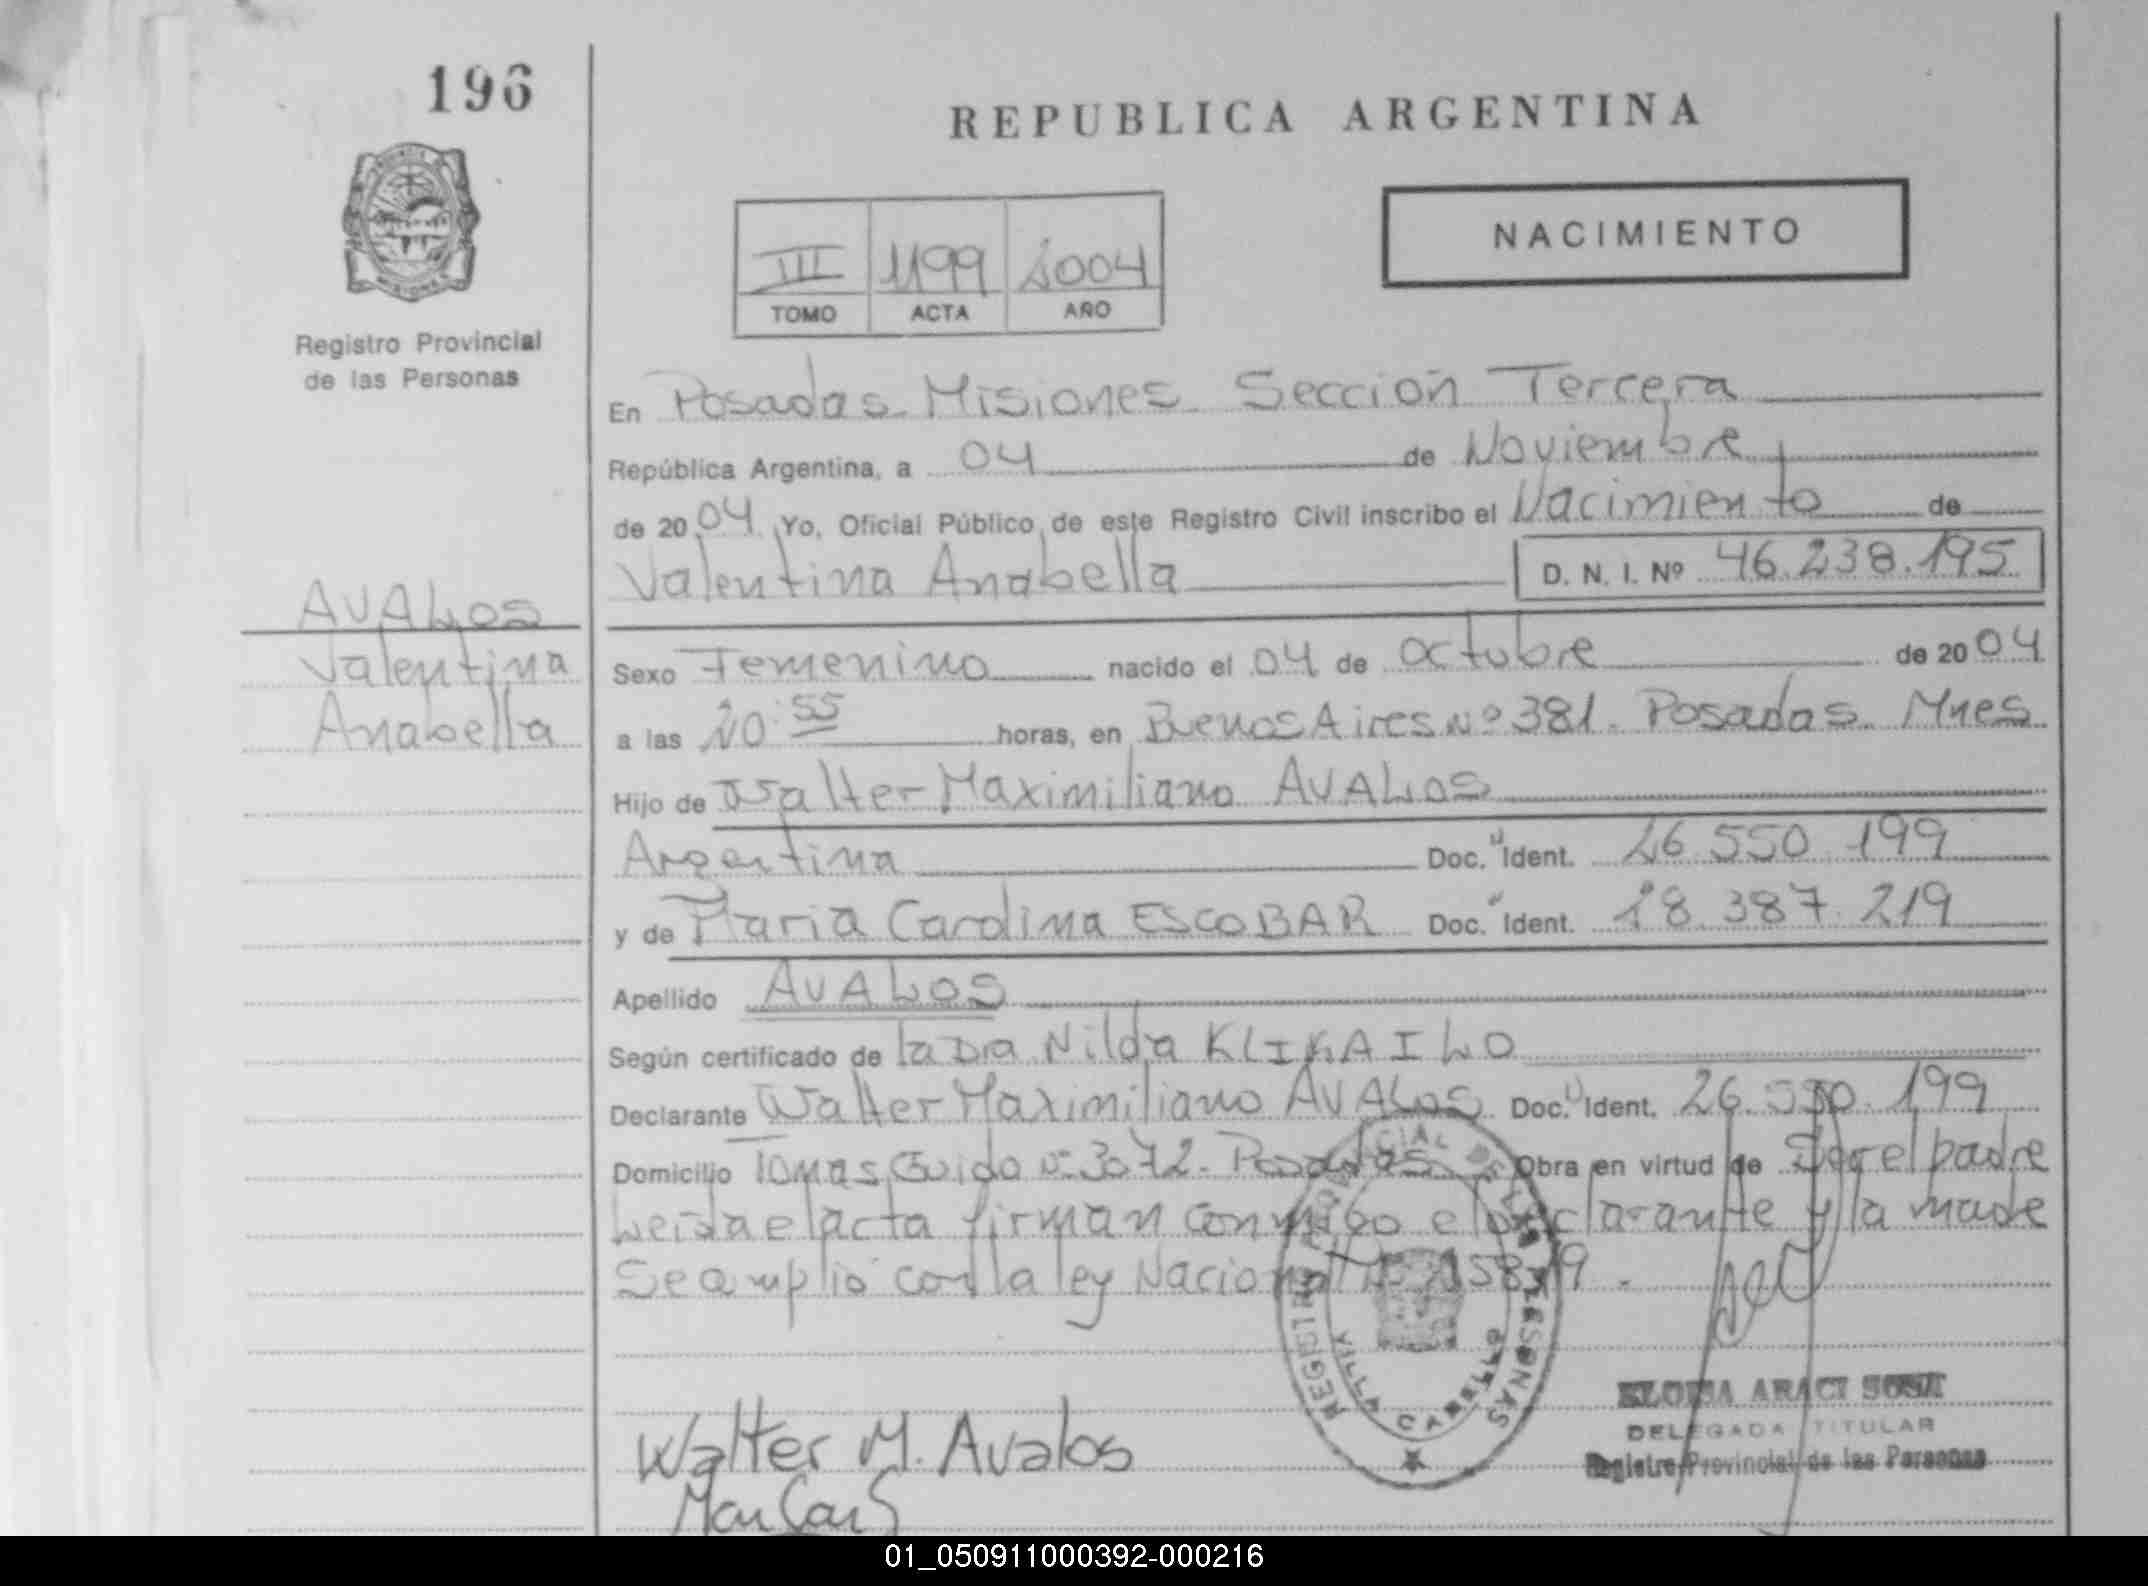 196
REPUBLICA ARGENTINA
NACIMIENTO
III 1199 2004
TOMO ACTA AÑO
Registro Provincial
de las Personas
En Posadas Misiones Sección Tercera
República Argentina, a 04 de Noviembre
de 2004 Yo, Oficial Público de este Registro Civil inscribo el Nacimiento de
Valentina Anabella D. N. I. Nº 46.238.195
AVALOS
Valentina
Anabella
Sexo Femenino nacido el 04 de octubre de 2004
a las 20:55 horas, en Buenos Aires Nº 381. Posadas Mnes
Hijo de Walter Maximiliano AVALOS
Argentina Doc. Ident. 26.550.199
y de Maria Carolina ESCOBAR Doc. Ident. 28.387.219
Apellido AVALOS
Según certificado de la Dra Nilda
Declarante Walter Maximiliano AVALOS Doc. Ident. 26.550.199
Domicilio Tomas Guido Nº 3072. Posadas Obra en virtud de Ser el padre
Leida el acta firman conmigo el declarante y la madre
Se amplió con la ley Nacional
REGISTRO PROVINCIAL DE LAS PERSONAS
VILLA CABELLO
Walter M. Avalos
ELOISA ARACI SOSA
DELEGADA TITULAR
Registro Provincial de las Personas
01_050911000392-000216